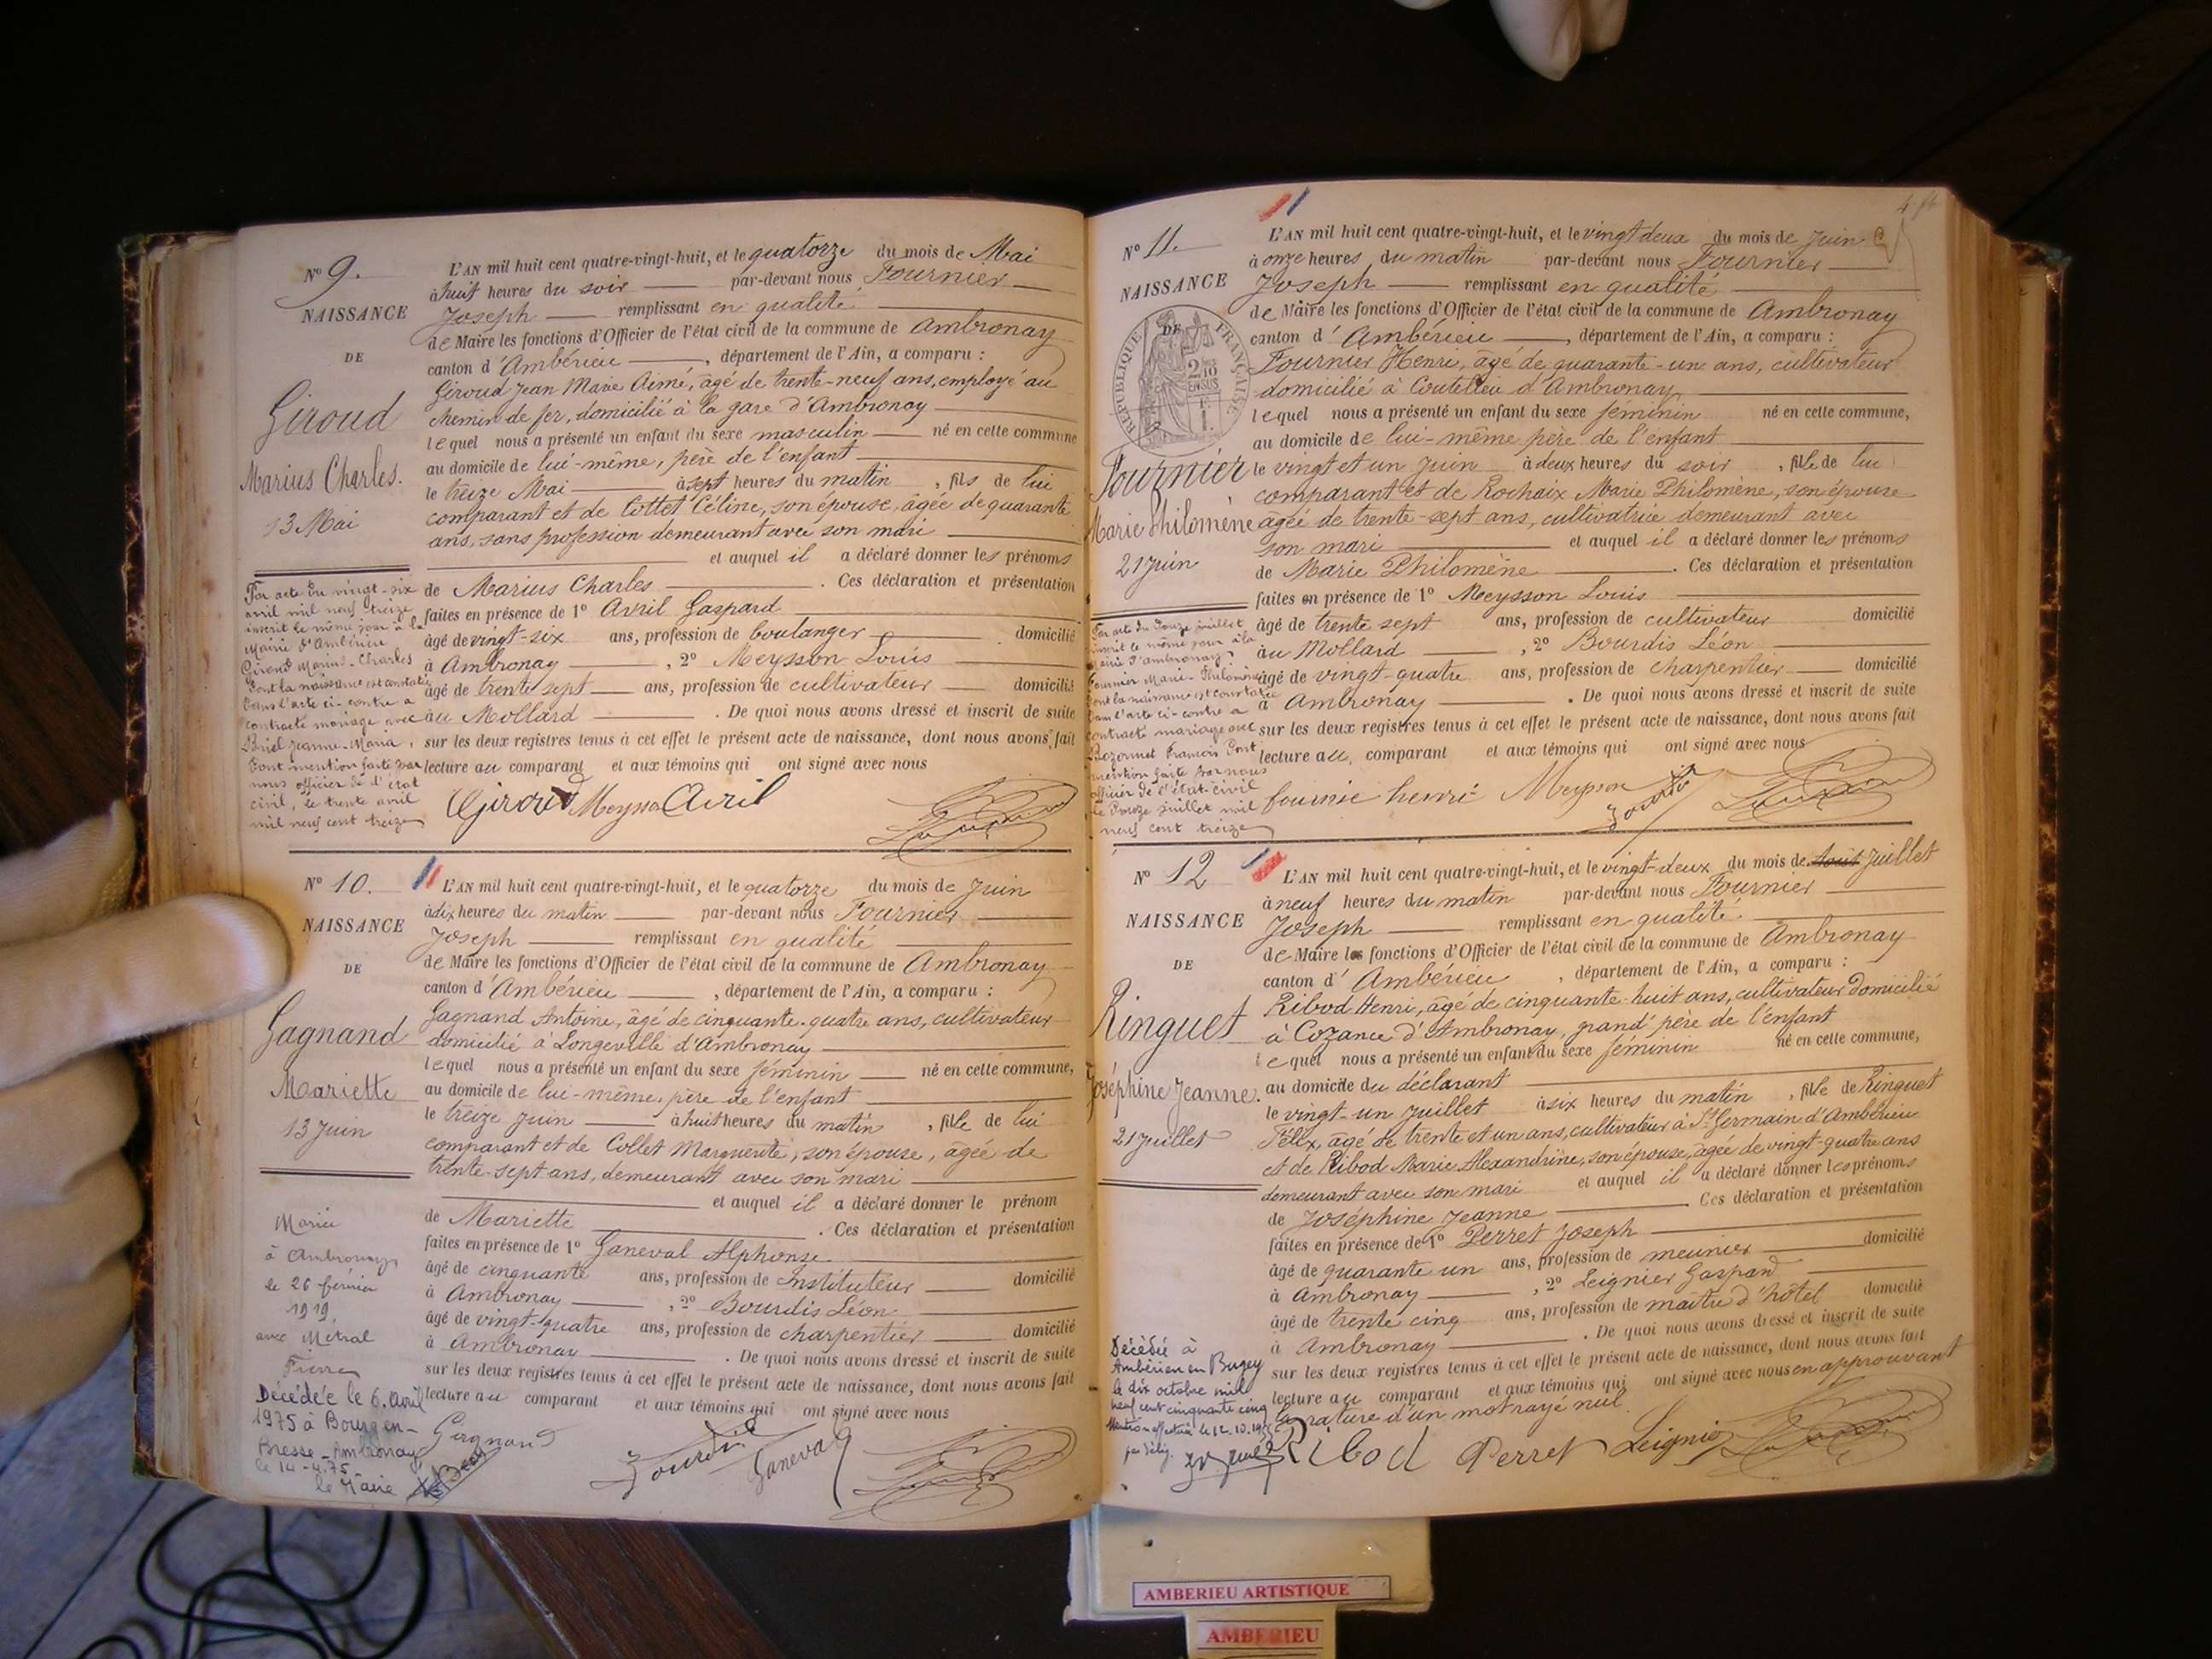 N° 9.
NAISSANCE
DE
Giroud
Marius Charles.
13 Mai
Par acte du vingt-six
avril mil neuf treize
inscrit le même jour à la
Mairie d'Ambérieu
Giroud Marius-Charles
dont la naissance est constatée
dans l'acte ci-contre a
contracté mariage avec
Briel Jeanne-Maria,
Dont mention faite par
nous officier de l'état
civil, le trente avril
mil neuf cent treize
L'AN mil huit cent quatre-vingt-huit, et le quatorze du mois de Mai
à huit heures du soir par-devant nous Fournier
Joseph remplissant en qualité
de Maire les fonctions d'Officier de l'état civil de la commune de Ambronay
canton d'Ambérieu, département de l'Ain, a comparu :
Giroud Jean Marie Aimé, âgé de trente-neuf ans, employé au
chemin de fer, domicilié à la gare d'Ambronay
lequel nous a présenté un enfant du sexe masculin né en cette commune
au domicile de lui-même, père de l'enfant
le treize Mai à sept heures du matin, fils de lui
comparant et de Cottet Céline, son épouse, âgée de quarante
ans, sans profession demeurant avec son mari
et auquel il a déclaré donner les prénoms
de Marius Charles. Ces déclaration et présentation
faites en présence de 1° Avril Gaspard
âgé de vingt-six ans, profession de boulanger domicilié
à Ambronay, 2° Meysson Louis
âgé de trente sept ans, profession de cultivateur domicilié
au Mollard. De quoi nous avons dressé et inscrit de suite
sur les deux registres tenus à cet effet le présent acte de naissance, dont nous avons fait
lecture au comparant et aux témoins qui ont signé avec nous
Giroud Meysson Avril
N° 10.
NAISSANCE
DE
Gagnand
Mariette
13 Juin
Mariée
à Ambronay
le 26 février
1919
avec Métral
Pierre
Décédée le 6. Avril
1975 à Bourg en-
Bresse - Ambronay
le 14-4.75
le Maire
L'AN mil huit cent quatre-vingt-huit, et le quatorze du mois de Juin
à dix heures du matin par-devant nous Fournier
Joseph remplissant en qualité
de Maire les fonctions d'Officier de l'état civil de la commune de Ambronay
canton d'Ambérieu, département de l'Ain, a comparu :
Gagnand Antoine, âgé de cinquante-quatre ans, cultivateur
domicilié à Longeville d'Ambronay
lequel nous a présenté un enfant du sexe féminin né en cette commune,
au domicile de lui-même, père de l'enfant
le treize Juin à huit heures du matin, fille de lui
comparant et de Collet Marguerite, son épouse, âgée de
trente-sept ans, demeurant avec son mari
et auquel il a déclaré donner le prénom
de Mariette. Ces déclaration et présentation
faites en présence de 1° Ganeval Alphonse
âgé de cinquante ans, profession de Instituteur domicilié
à Ambronay, 2° Bourdis Léon
âgé de vingt-quatre ans, profession de charpentier domicilié
à Ambronay. De quoi nous avons dressé et inscrit de suite
sur les deux registres tenus à cet effet le présent acte de naissance, dont nous avons fait
lecture au comparant et aux témoins qui ont signé avec nous
Gagnand Bourdis Ganeval
N° 11.
NAISSANCE
DE
RÉPUBLIQUE FRANÇAISE
2/10 EN SUS
Fournier
Marie Philomène
21 Juin
Par acte du douze juillet
inscrit le même jour à la
mairie d'ambronay
Fournier Marie-Philomène
dont la naissance est constatée
dans l'acte ci-contre a
contracté mariage avec
Bozonnet François Dont
mention faite par nous
officier de l'état civil
le douze juillet mil
neuf cent treize
L'AN mil huit cent quatre-vingt-huit, et le vingt deux du mois de Juin
à onze heures du matin par-devant nous Fournier
Joseph remplissant en qualité
de Maire les fonctions d'Officier de l'état civil de la commune de Ambronay
canton d'Ambérieu, département de l'Ain, a comparu :
Fournier Henri, âgé de quarante-un ans, cultivateur
domicilié à Coutelieu d'Ambronay,
lequel nous a présenté un enfant du sexe féminin né en cette commune,
au domicile de lui-même père de l'enfant
le vingt et un Juin à deux heures du soir, fille de lui
comparant et de Rochaix Marie Philomène, son épouse
âgée de trente-sept ans, cultivatrice demeurant avec
son mari et auquel il a déclaré donner les prénoms
de Marie Philomène. Ces déclaration et présentation
faites en présence de 1° Meysson Louis
âgé de trente sept ans, profession de cultivateur domicilié
au Mollard, 2° Bourdis Léon
âgé de vingt-quatre ans, profession de charpentier domicilié
à Ambronay. De quoi nous avons dressé et inscrit de suite
sur les deux registres tenus à cet effet le présent acte de naissance, dont nous avons fait
lecture au comparant et aux témoins qui ont signé avec nous
fournie henri Meysson
N° 12
NAISSANCE
DE
Ringuet
Joséphine Jeanne.
21 Juillet
Décédée à
Ambérieu en Bugey
le dix octobre mil
neuf cent cinquante cinq
L'AN mil huit cent quatre-vingt-huit, et le vingt-deux du mois de Juillet
à neuf heures du matin par-devant nous Fournier
Joseph remplissant en qualité
de Maire les fonctions d'Officier de l'état civil de la commune de Ambronay
canton d'Ambérieu, département de l'Ain, a comparu :
Ribod Henri, âgé de cinquante-huit ans, cultivateur domicilié
à Cozance d'Ambronay, grand'père de l'enfant
lequel nous a présenté un enfant du sexe féminin né en cette commune,
au domicile du déclarant
le vingt-un Juillet à six heures du matin, fille de Ringuet
Félix, âgé de trente et un ans, cultivateur à St Germain d'Ambérieu
et de Ribod Marie Alexandrine, son épouse, âgée de vingt-quatre ans
demeurant avec son mari et auquel il a déclaré donner les prénoms
de Joséphine Jeanne. Ces déclaration et présentation
faites en présence de 1° Perret Joseph
âgé de quarante un ans, profession de meunier domicilié
à Ambronay, 2° Leignier Gaspard
âgé de trente cinq ans, profession de maître d'hôtel domicilié
à Ambronay. De quoi nous avons dressé et inscrit de suite
sur les deux registres tenus à cet effet le présent acte de naissance, dont nous avons fait
lecture au comparant et aux témoins qui ont signé avec nous en approuvant
la rature d'un mot rayé nul.
Ribod Perret Leignier
AMBERIEU ARTISTIQUE
AMBERIEU